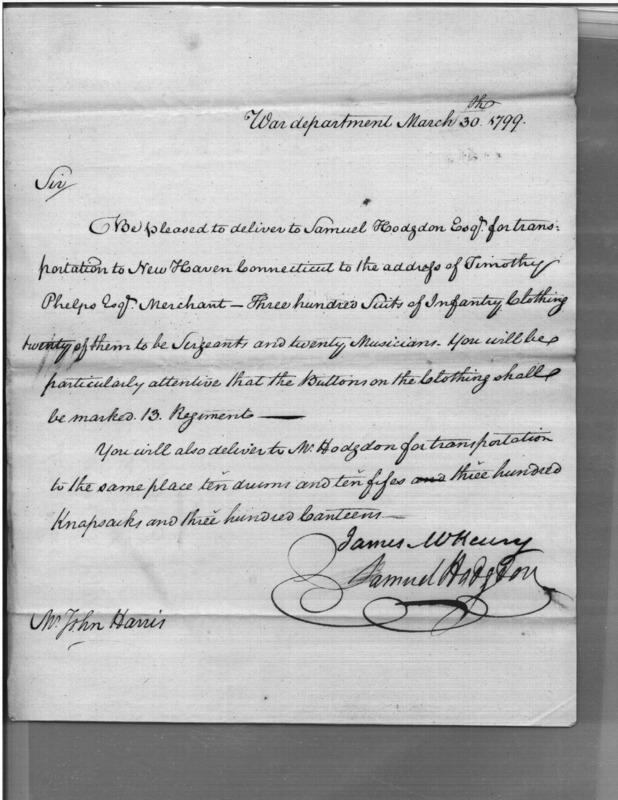 War department March 30th. 1799.
Sir
Be pleased to deliver to Samuel Hodgdon Esqr. for trans-
portation to New Haven Connecticut to the address of Timothy
Phelps Esqr. Merchant — Three hundred Suits of Infantry Clothing
twenty of them to be Sergeants and twenty Musicians. You will be
particularly attentive that the Buttons on the Clothing shall
be marked. 13. Regiment —
You will also deliver to Mr. Hodgdon for transportation
to the same place ten drums and ten fifes and three hundred
Knapsacks and three hundred Canteens —
James McHenry
Samuel Hodgdon
Mr. John Harris